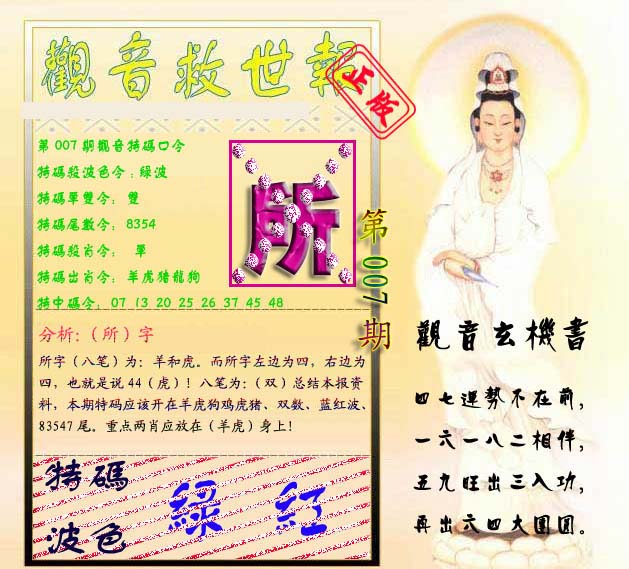 觀音救世報
正版
第 007 期觀音特碼口令
特碼殺波色令：綠波
特碼單雙令： 雙
特碼尾數令： 8354
特碼殺肖令： 單
特碼出肖令： 羊虎猪龍狗
特中碼令： 07 13 20 25 26 37 45 48
所
第 007 期
分析：（所）字
所字（八笔）为：羊和虎。而所字左边为四，右边为
四，也就是说 44（虎）！八笔为：（双）总结本报资
料，本期特码应该开在羊虎狗鸡虎猪、双数、蓝红波、
83547 尾。重点两肖应放在（羊虎）身上！
特碼
波色
綠 紅
觀音玄機書
四七運勢不在前，
一六一八二相伴，
五九旺出三入功，
再出六四大團圓。